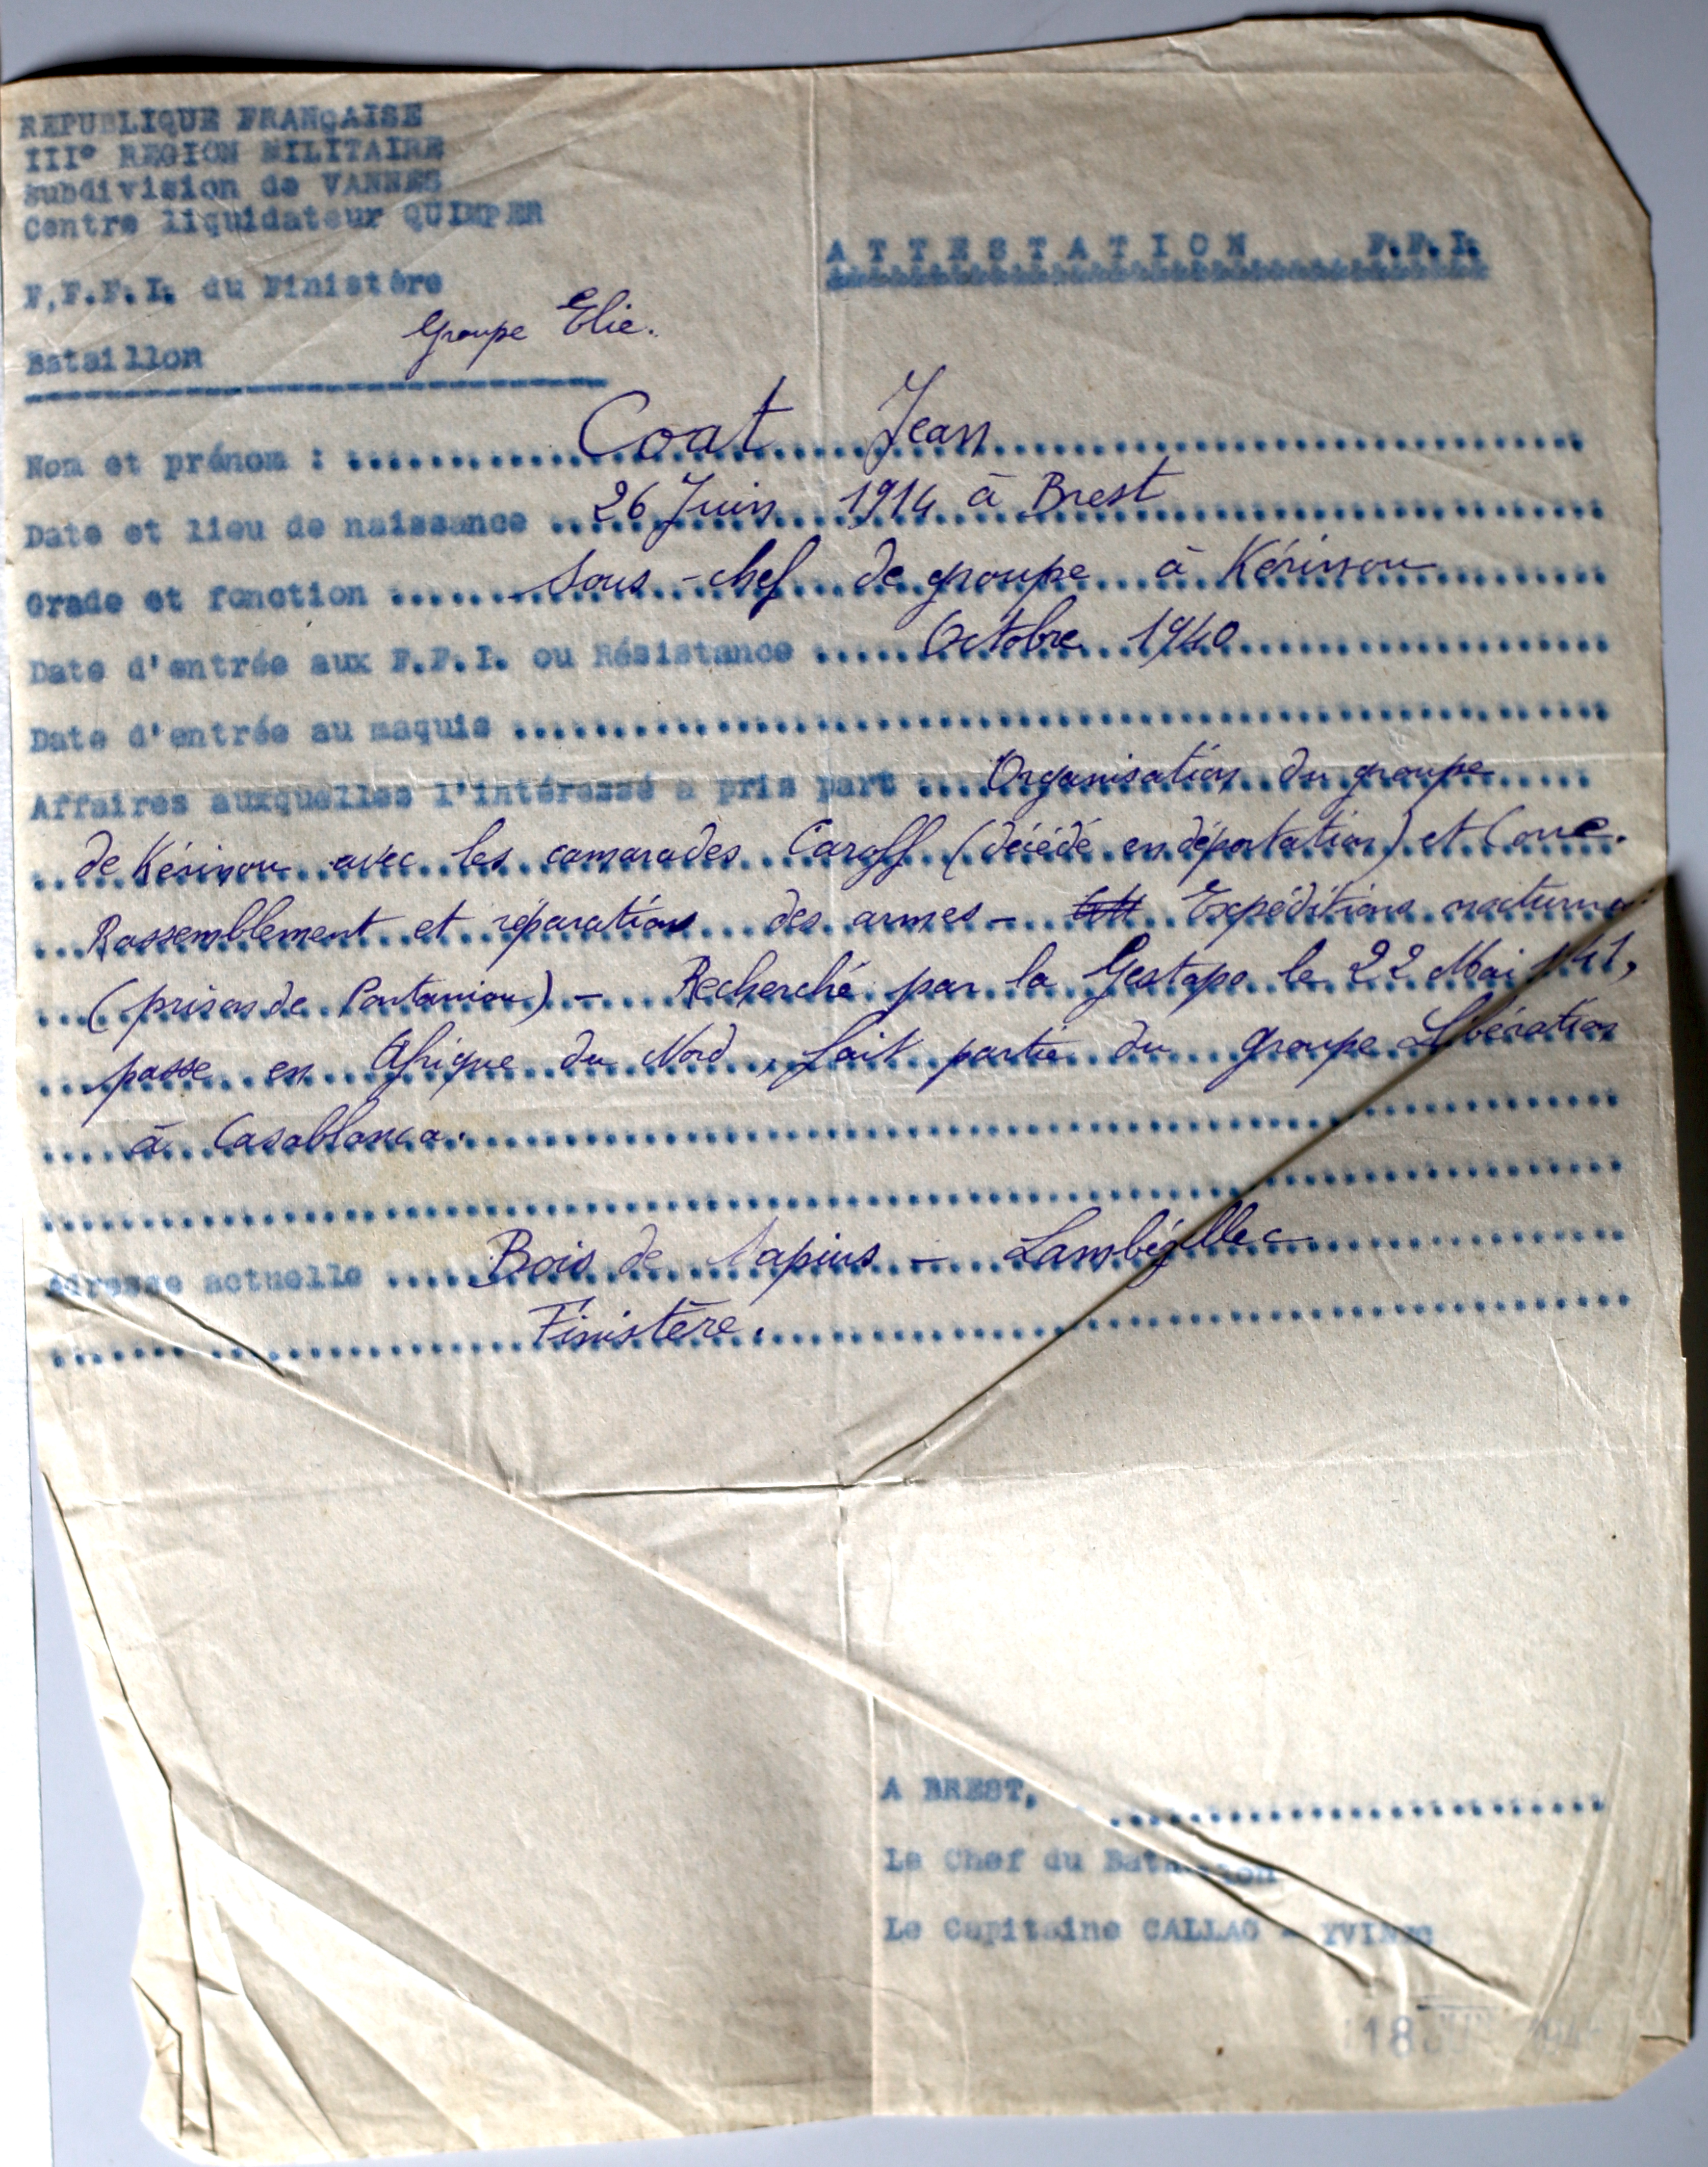 REPUBLIQUE FRANÇAISE
III° REGION MILITAIRE
Subdivision de VANNES
Centre liquidateur QUIMPER
A T T E S T A T I O N F.F.I.
F,F.F.I. du Finistère
Groupe Elie.
Bataillon
Nom et prénom : Coat Jean
Date et lieu de naissance 26 Juin 1914 à Brest
Grade et fonction Sous-chef de groupe à Kérinou
Date d'entrée aux F.F.I. ou Résistance Octobre 1940
Date d'entrée au maquis
Affaires auxquelles l'intéressé a pris part Organisation du groupe
de Kérinou avec les camarades Caroff (décédé en déportation) et
Rassemblement et réparations des armes - Expéditions nocturnes
(prison de Pontaniou) - Recherché par la Gestapo le 22 Mai 1941,
passe en Afrique du Nord, fait partie du groupe Libération
à Casablanca.
Adresse actuelle Bois de Sapins - Lambézellec
Finistère.
A BREST,
Le Chef du Bataillon
Le Capitaine CALLAC - YVINEC
18